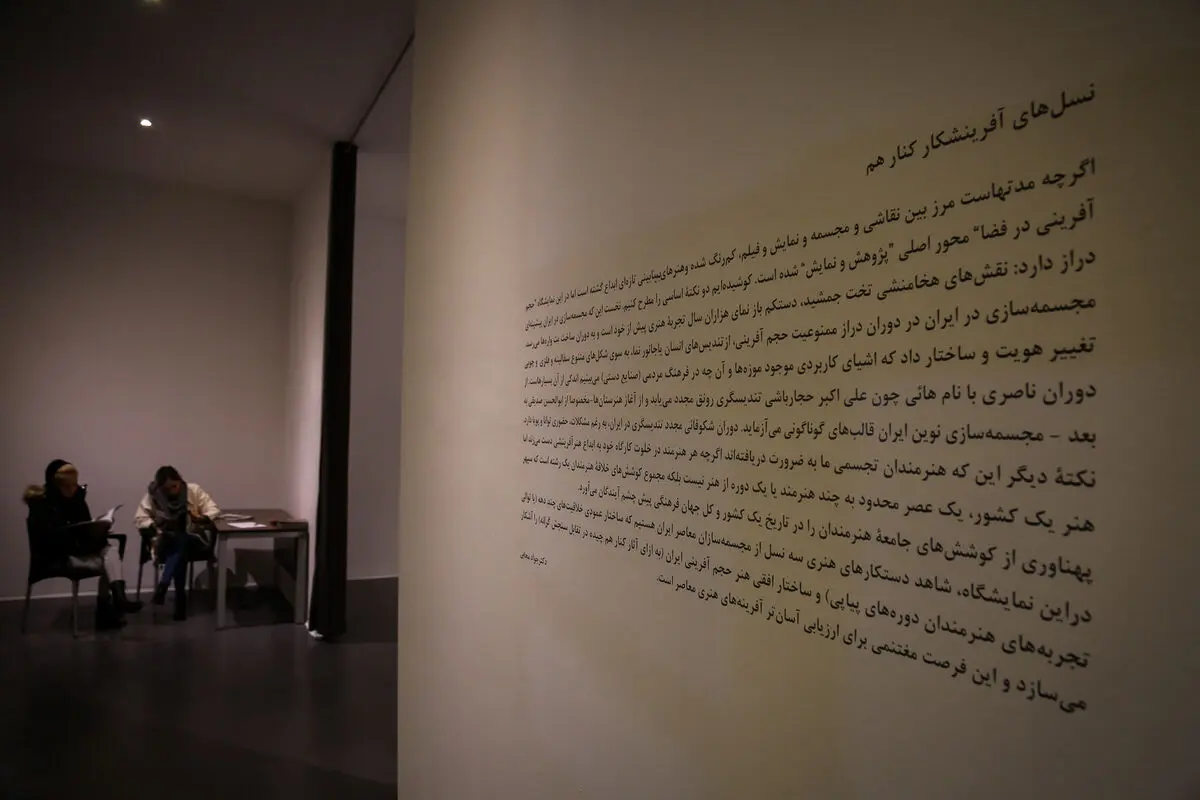 نسل‌های آفرینشکار کنار هم
اگرچه مدتهاست مرز بین نقاشی و مجسمه و نمایش و فیلم، کم‌رنگ شده وهنرهای‌بینابینی تازه‌ای ابداع گشته است اما در این نمایشگاه "حجم
آفرینی در فضا" محور اصلی "پژوهش و نمایش" شده است. کوشیده‌ایم دو نکتهٔ اساسی را مطرح کنیم. نخست این که مجسمه‌سازی در ایران پیشینه‌ای
دراز دارد: نقش‌های هخامنشی تخت جمشید، دستکم باز نمای هزاران سال تجربهٔ هنری پیش از خود است و به دوران ساخت بت واره‌ها می‌رسد.
مجسمه‌سازی در ایران در دوران دراز ممنوعیت حجم آفرینی، ازتندیس‌های انسان یاجانور نما، به سوی شکل‌های متنوع سفالینه و فلزی و چوبی
تغییر هویت و ساختار داد که اشیای کاربردی موجود موزه‌ها و آن چه در فرهنگ مردمی (صنایع دستی) می‌بینیم اندکی از آن بسیارهاست. از
دوران ناصری با نام هائی چون علی اکبر حجارباشی تندیسگری رونق مجدد می‌یابد و از آغاز هنرستان‌ها-مخصوصا از ابوالحسن صدیقی به
بعد - مجسمه‌سازی نوین ایران قالب‌های گوناگونی می‌آزماید. دوران شکوفائی مجدد تندیسگری در ایران، به رغم مشکلات، حضوری توانا و پویا دارد.
نکتهٔ دیگر این که هنرمندان تجسمی ما به ضرورت دریافته‌اند اگرچه هر هنرمند در خلوت کارگاه خود به ابداع هنرآفرینشی دست می‌زند اما
هنر یک کشور، یک عصر محدود به چند هنرمند یا یک دوره از هنر نیست بلکه مجموع کوشش‌های خلاقهٔ هنرمندان یک رشته است که سپهر
پهناوری از کوشش‌های جامعهٔ هنرمندان را در تاریخ یک کشور و کل جهان فرهنگی پیش چشم آیندگان می‌آورد.
دراین نمایشگاه، شاهد دستکارهای هنری سه نسل از مجسمه‌سازان معاصر ایران هستیم که ساختار عمودی خلاقیت‌های چند دهه (با توالی
تجربه‌های هنرمندان دوره‌های پیاپی) و ساختار افقی هنر حجم آفرینی ایران (به ازای آثار کنار هم چیده در تقابل سنجش گرانه) را آشکار
می‌سازد و این فرصت مغتنمی برای ارزیابی آسان‌تر آفرینه‌های هنری معاصر است.
دکتر جواد مجابی